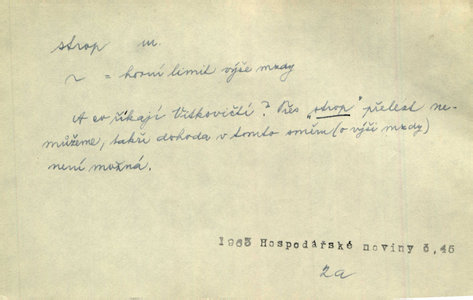 strop m.
~ = horní limit výše mzdy
A co říkají Vítkovičtí? Přes „strop" přelézt ne-
můžeme, takže dohoda v tomto směru (o výši mzdy)
není možná.
1965 Hospodářské noviny č. 45
2a